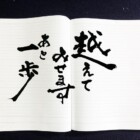 越えて
みせます
あと
一歩